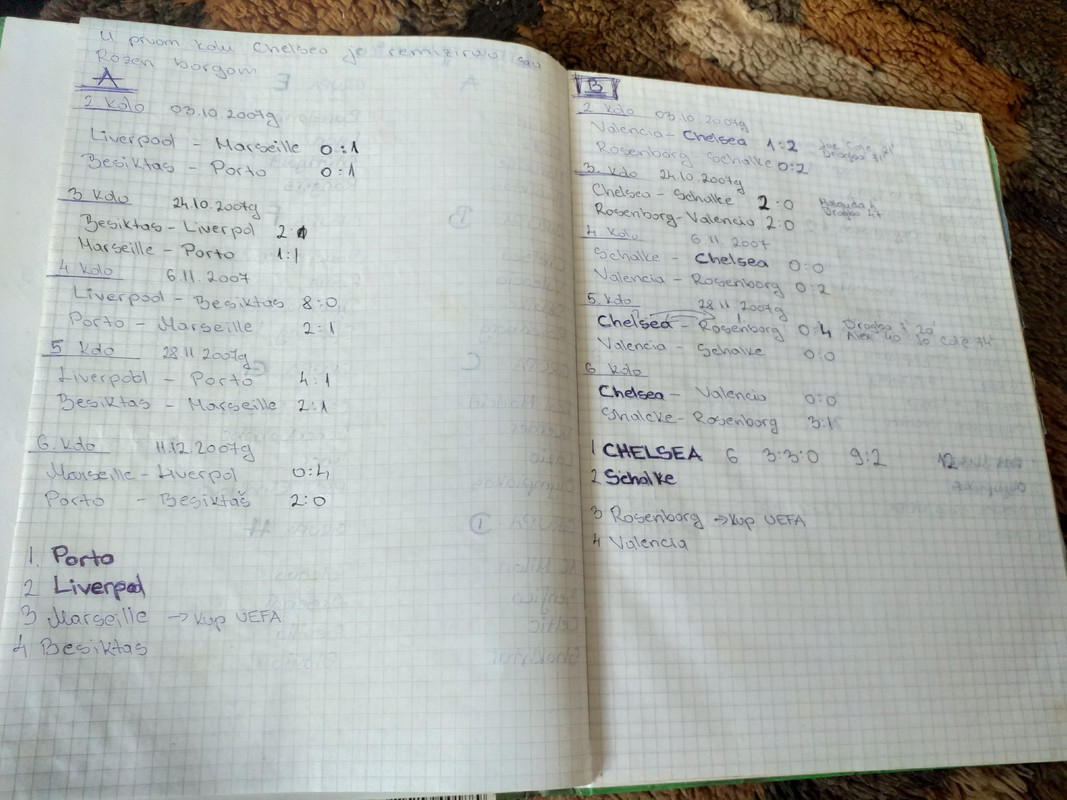 U prvom kolu Chelsea je remizirao sau
Rozen borgom
A
2 Kolo 03.10.2007g
Liverpool - Marseille 0:1
Besiktas - Porto 0:1
3 Kolo 24.10.2007g
Besiktas - Liverpol 2:1
Marseille - Porto 1:1
4 Kolo 6.11.2007
Liverpool - Besiktas 8:0
Porto - Marseille 2:1
5 Kolo 28 11 2007g
Liverpool - Porto 4:1
Besiktas - Marseille 2:1
6. Kolo 11.12.2007g
Marseille - Liverpol 0:4
Porto - Besiktaš 2:0
1. Porto
2 Liverpool
3 Marseille → Kup UEFA
4 Besiktas
B
2 Kolo 03.10.2007g
Valencia - Chelsea 1:2 Joe Cole 21'
Drogba 71'
Rosenborg Schalke 0:2
3. Kolo 24.10.2007g
Chelsea - Schalke 2:0
Drogba 47
Rosenborg - Valencia 2:0
4 Kolo 6.11.2007
Schalke - Chelsea 0:0
Valencia - Rosenborg 0:2
5. Kolo 28 11 2007g
Chelsea - Rosenborg 0:4 Drogba 20'
Alex 40 Cole 74'
Valencia - Schalke 0:0
6 Kolo
Chelsea - Valencia 0:0
Shalcke - Rosenborg 3:1
1 CHELSEA 6 3:3:0 9:2 12
2 Schalke
3 Rosenborg → Kup UEFA
4 Valencia